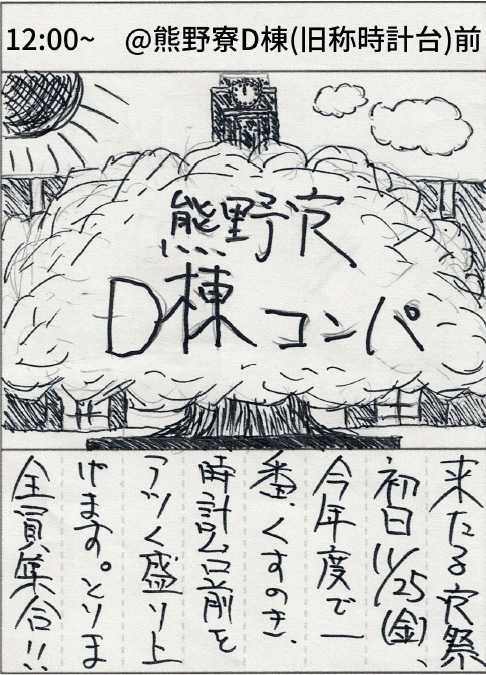 12:00~ @熊野寮D棟(旧称時計台)前
熊野寮
D棟コンパ
来たる寮祭、
初日11/25(金)、
今年度で一
番、くすのき、
時計台前を
アツく盛り上
げます。とりま
全員集合!!